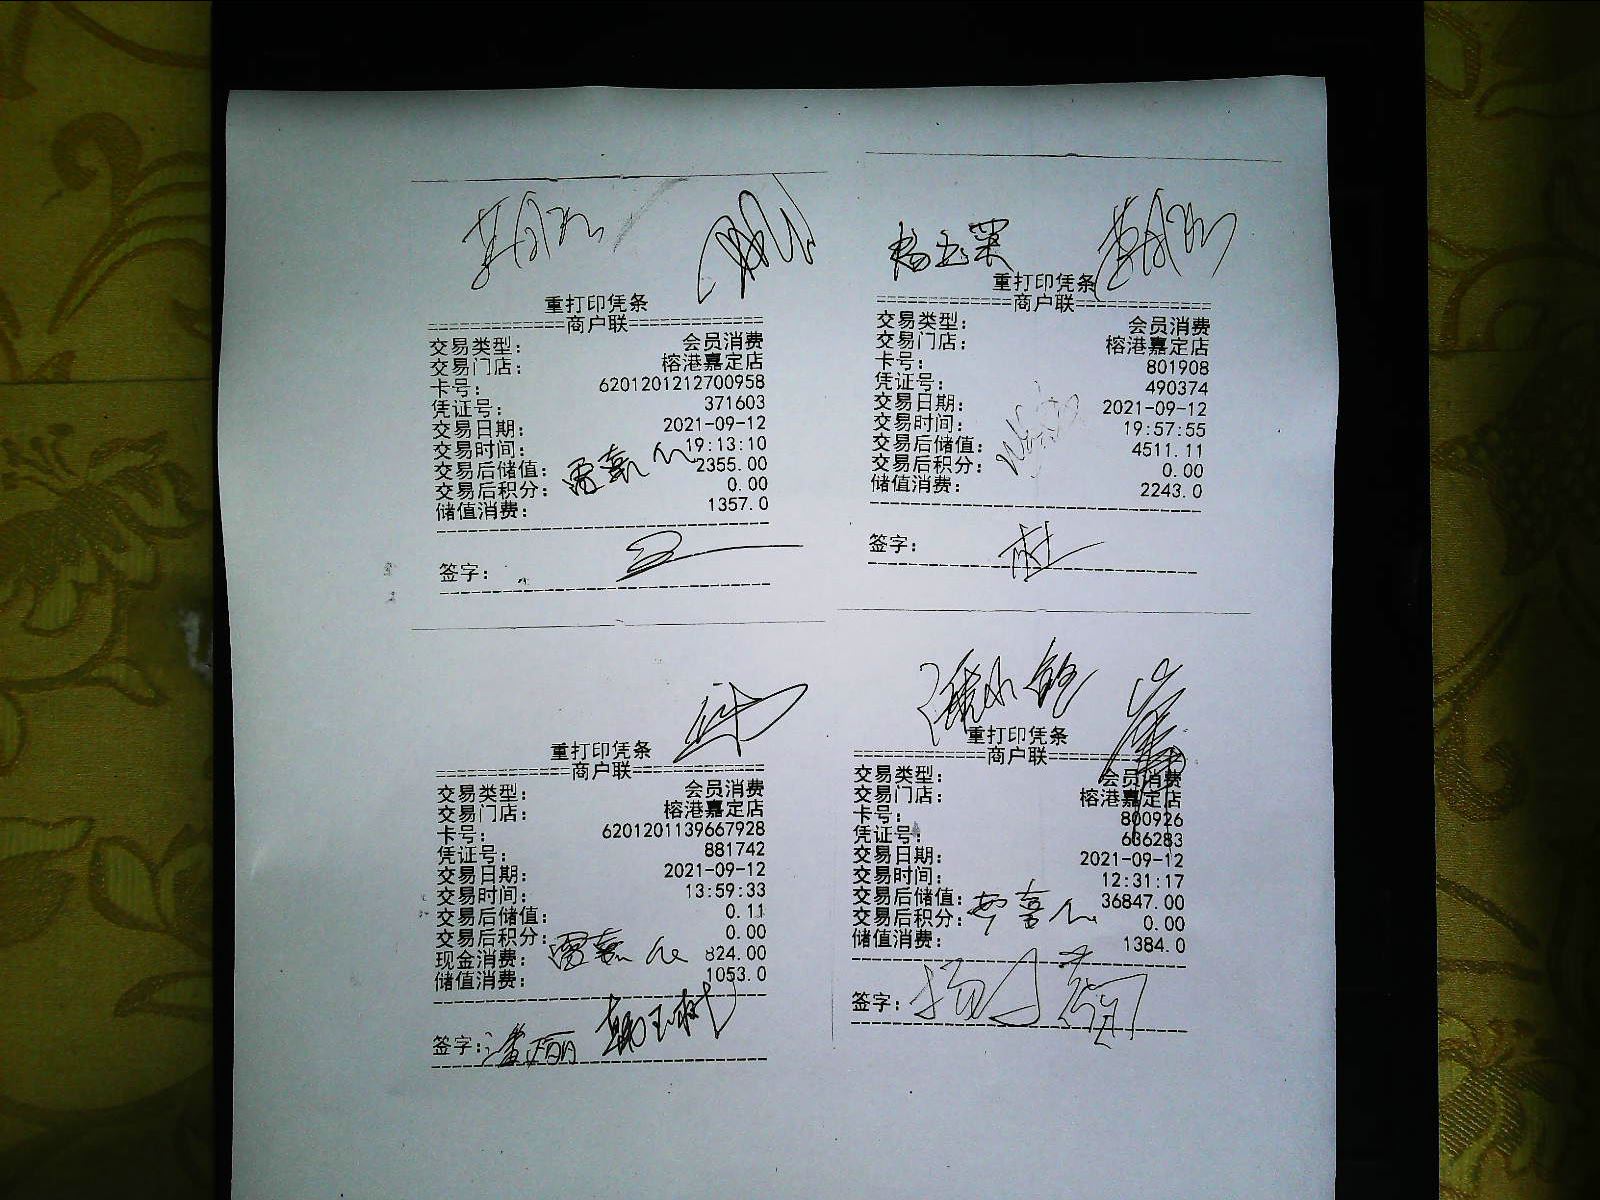 重打印凭条
=============商户联=============
交易类型: 会员消费
交易门店: 榕港嘉定店
卡号: 6201201212700958
凭证号: 371603
交易日期: 2021-09-12
交易时间: 19:13:10
交易后储值: 2355.00
交易后积分: 0.00
储值消费: 1357.0
签字:
杨玉罘
重打印凭条
=============商户联=============
交易类型: 会员消费
交易门店: 榕港嘉定店
卡号: 801908
凭证号: 490374
交易日期: 2021-09-12
交易时间: 19:57:55
交易后储值: 4511.11
交易后积分: 0.00
储值消费: 2243.0
签字: 杜
重打印凭条
=============商户联=============
交易类型: 会员消费
交易门店: 榕港嘉定店
卡号: 6201201139667928
凭证号: 881742
交易日期: 2021-09-12
交易时间: 13:59:33
交易后储值: 0.11
交易后积分: 0.00
现金消费: 824.00
储值消费: 1053.0
签字: 潘丽 韩玉树
重打印凭条
=============商户联=============
交易类型: 会员消费
交易门店: 榕港嘉定店
卡号: 800926
凭证号: 636283
交易日期: 2021-09-12
交易时间: 12:31:17
交易后储值: 36847.00
交易后积分: 0.00
储值消费: 1384.0
签字: